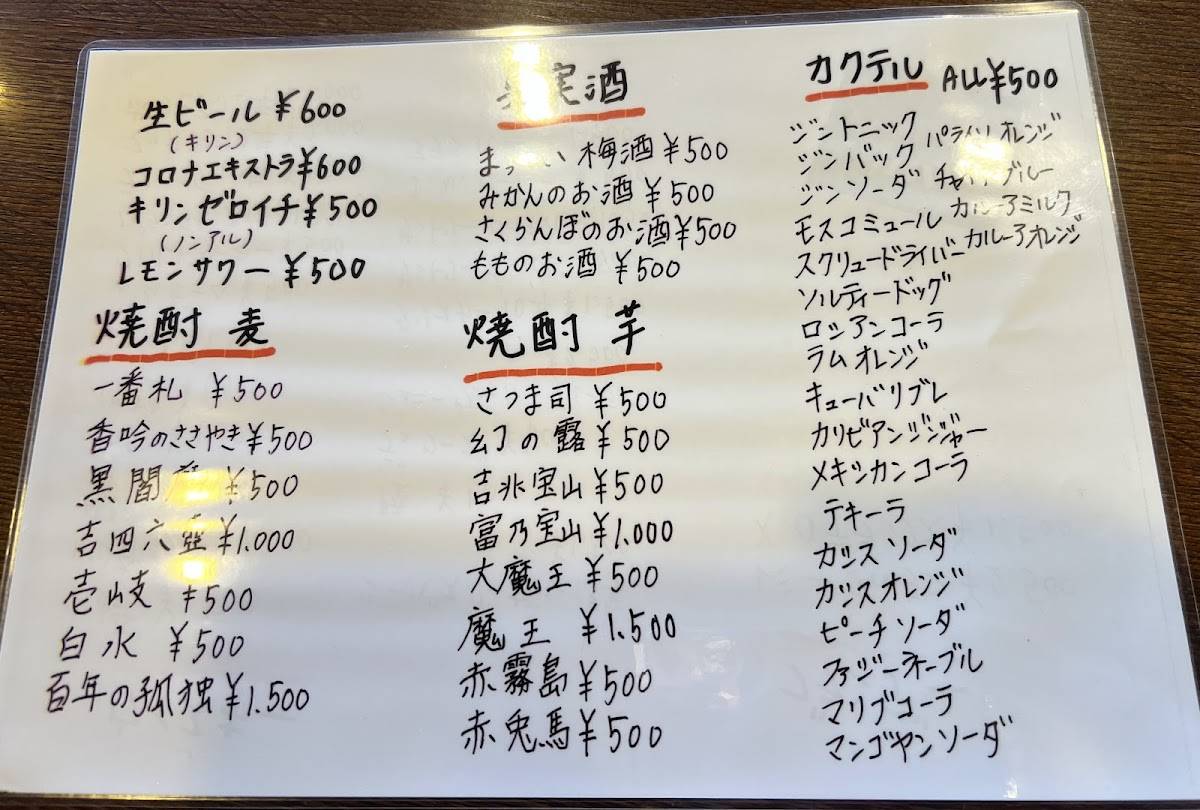 生ビール ¥600
(キリン)
コロナエキストラ¥600
キリンゼロイチ¥500
(ノンアル)
レモンサワー ¥500
焼酎 麦
一番札 ¥500
香吟のささやき¥500
黒閻 ¥500
吉四六 ¥1.000
壱岐 ¥500
白水 ¥500
百年の孤独¥1.500
実酒
い 梅酒 ¥500
みかんのお酒 ¥500
さくらんぼのお酒¥500
もものお酒 ¥500
焼酎 芋
さつま司 ¥500
幻の露 ¥500
吉兆宝山¥500
富乃宝山¥1.000
大魔王 ¥500
魔王 ¥1.500
赤霧島 ¥500
赤兎馬 ¥500
カクテル ALL¥500
ジントニック
ジンバック
ジンソーダ
モスコミュール
スクリュードライバー
ソルティードッグ
ロシアンコーラ
ラムオレンジ
キューバリブレ
カリビアンジンジャー
メキシカンコーラ
テキーラ
カシスソーダ
カシスオレンジ
ピーチソーダ
ファジーネーブル
マリブコーラ
マンゴヤンソーダ
パライソオレンジ
チャイナブルー
カルーアミルク
カルーアオレンジ